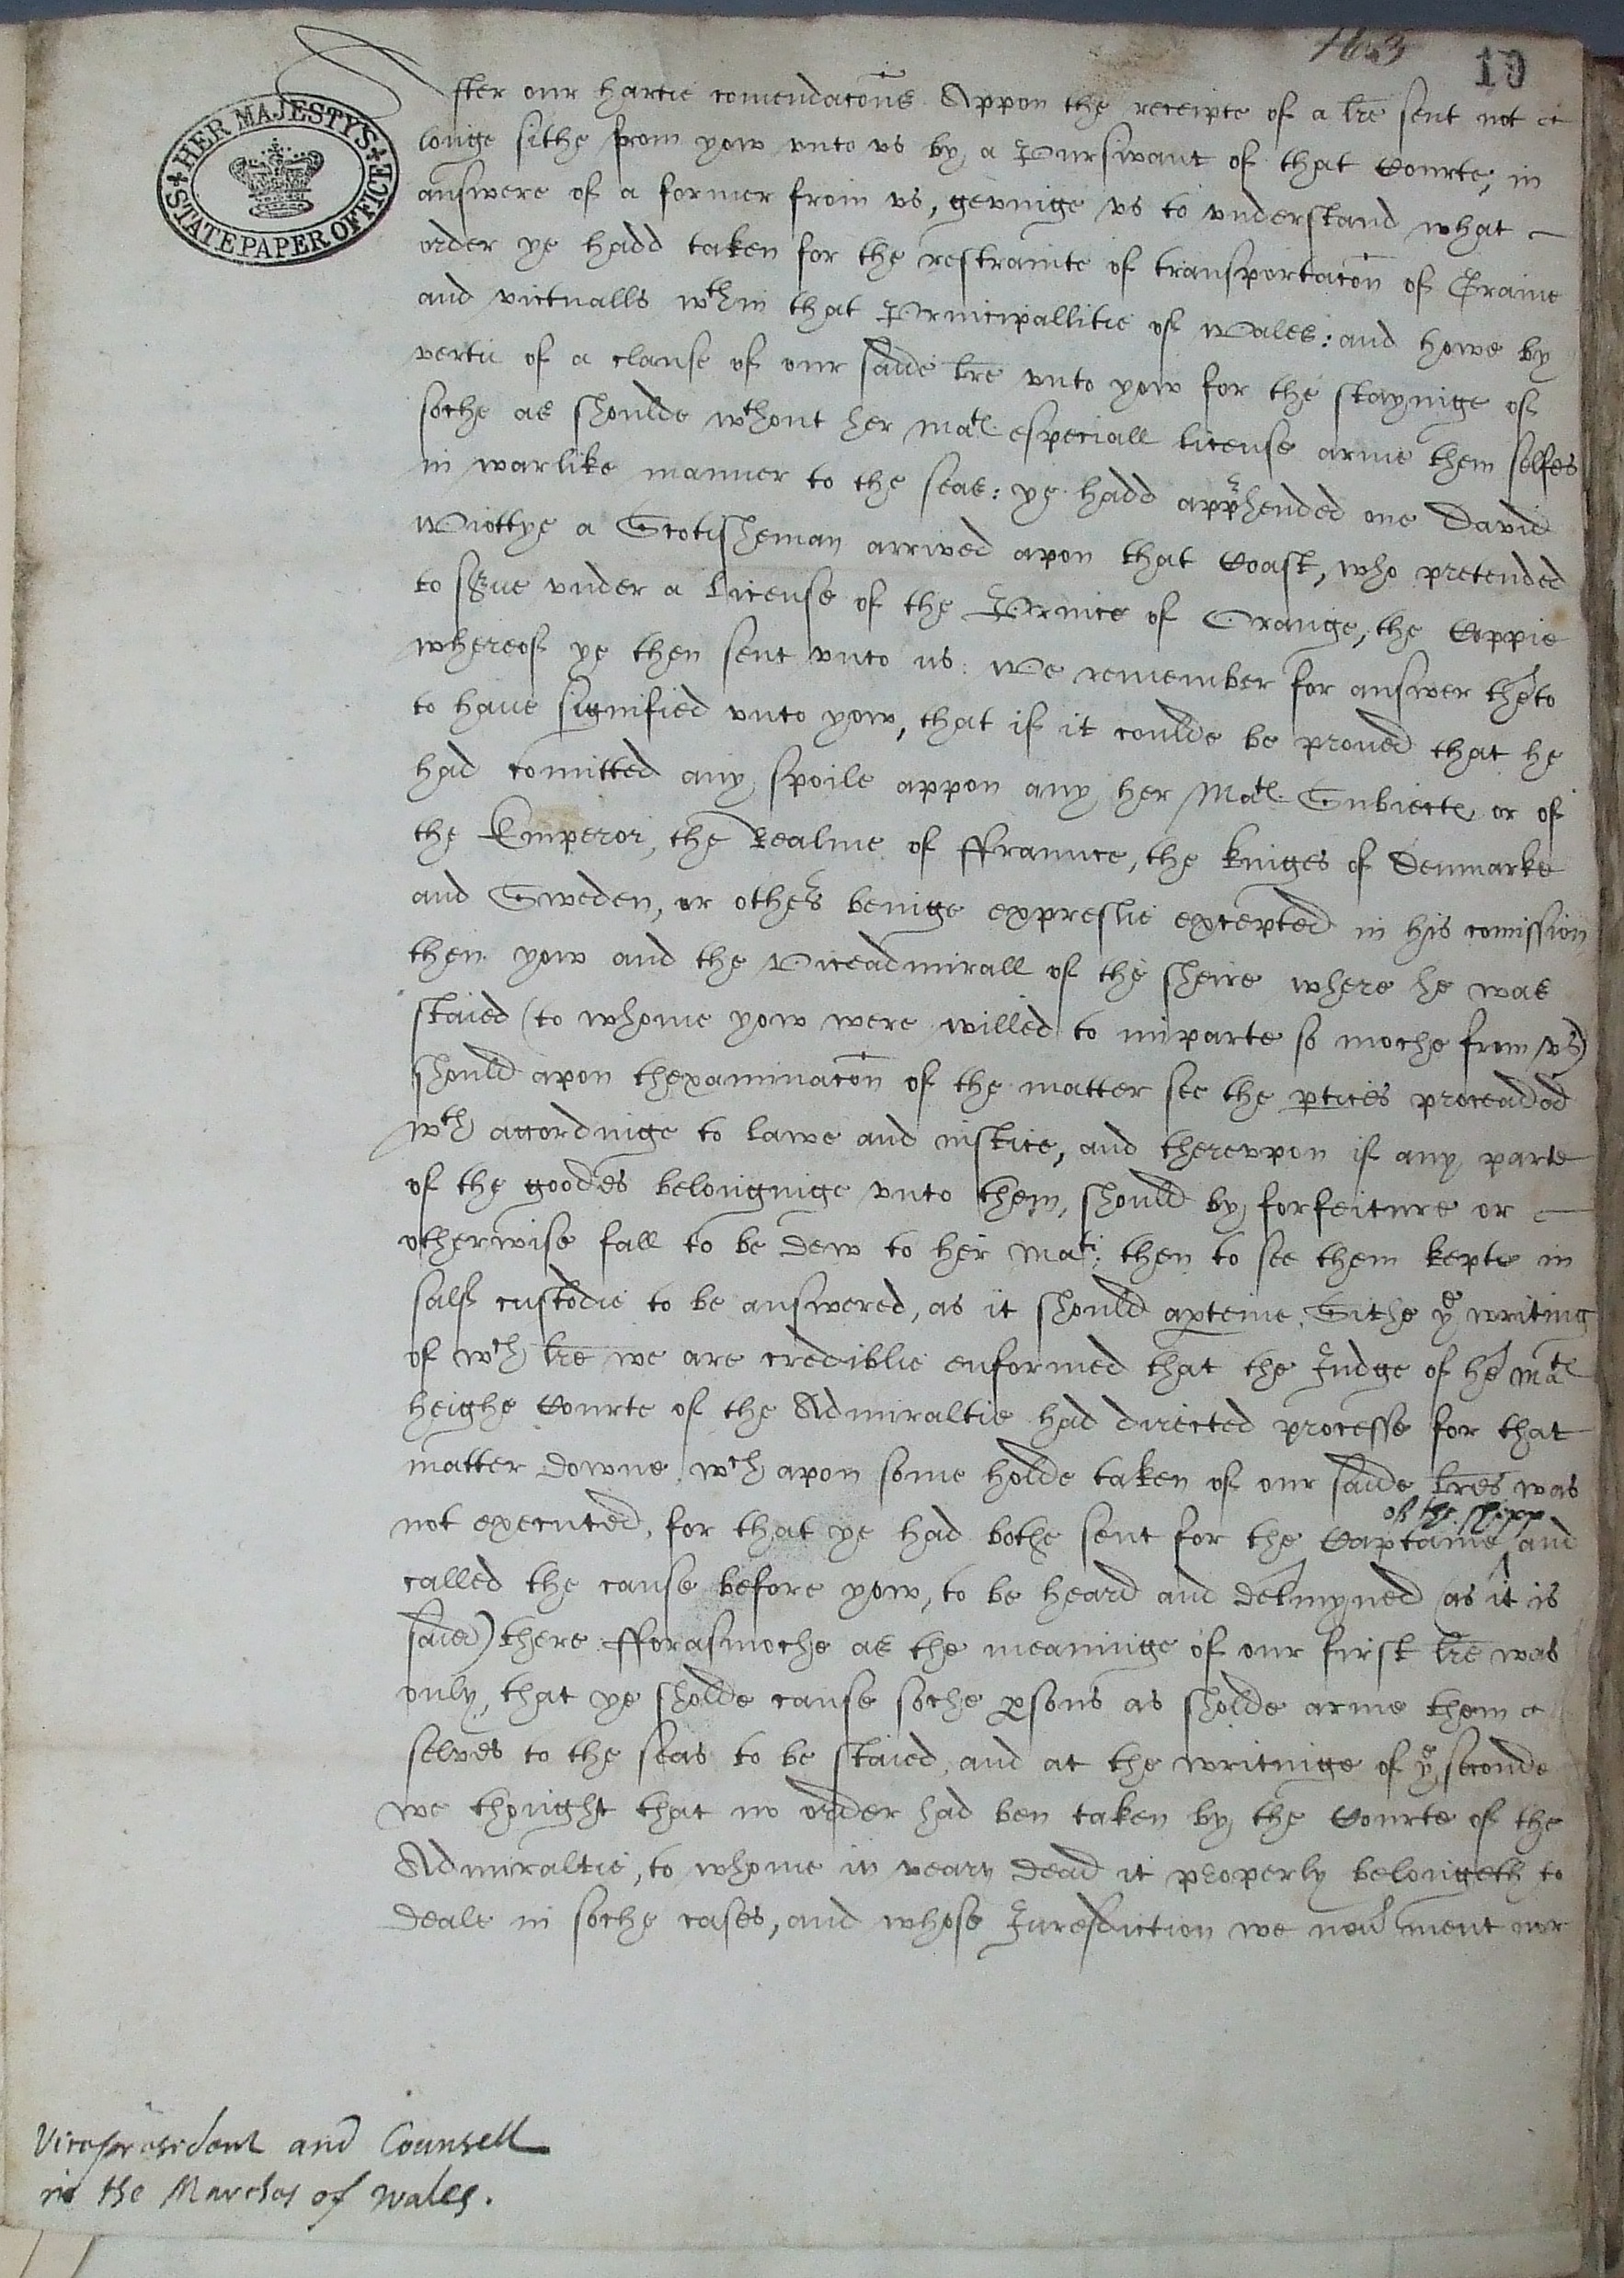 163
19
HER MAJESTY'S STATE PAPER OFFICE
After our hartie comendacons. Appon the receipte of a lre sent not
longe sithe from yow vnto vs by a Pursivant of that Courte, in
answere of a former from vs, gevinge vs to vnderstand what
order ye hadd taken for the restrainte of transportacon of Graine
and victualls wthin that Principallitie of Wales: and howe by
vertu of a clause of our saide lre vnto yow for the stayinge of
soche as shoulde wthout her Mats especiall license arme them selfes
in warlike manner to the seas: ye hadd apprhended one David
Wiottye a Scotisheman arrived apon that Coast, who pretended
to serue vnder a License of the Prince of Orange, the Coppie
whereof ye then sent vnto us: We remember for answer therto
to haue signified vnto yow, that if it coulde be proued that he
had comitted any spoile appon any her Mats Subiectes, or of
the Emperor, the Realme of ffraunce, the kinges of Denmarke
and Sweden, or others beinge expreslie excepted in his comission
then yow and the Viceadmirall of the sheire where he was
staied (to whome yow were willed to imparte so moche from vs)
should apon thexaminacon of the matter see the pties proceaded
wth accordinge to lawe and iustice, and therevpon if any parte
of the goodes belonginge vnto them, should by forfeiture or
otherwise fall to be dew to her Matie: then to see them kepte in
salf custodie to be answered, as it should apteine. Sithe ye writing
of wch lre we are crediblie enformed that the Judge of her Mats
heighe Courte of the Admiraltie had directed processe for that
matter downe, wch apon some holde taken of our saide lres was
not executed, for that ye had bothe sent for the Captaine of the shipp and
called the cause before yow, to be heard and determyned (as it is
saied) there. fforasmoche as the meaninge of our first lre was
only, that ye sholde cause soche psons as sholde arme them
selves to the seas to be staied, and at the writinge of ye seconde
we thought that no order had ben taken by the Courte of the
Admiraltie, to whome in veary dead it properly belongeth to
deale in soche cases, and whose Juresdiction we neuer ment nor
Vicepresident and Counsell
in the Marches of Wales.